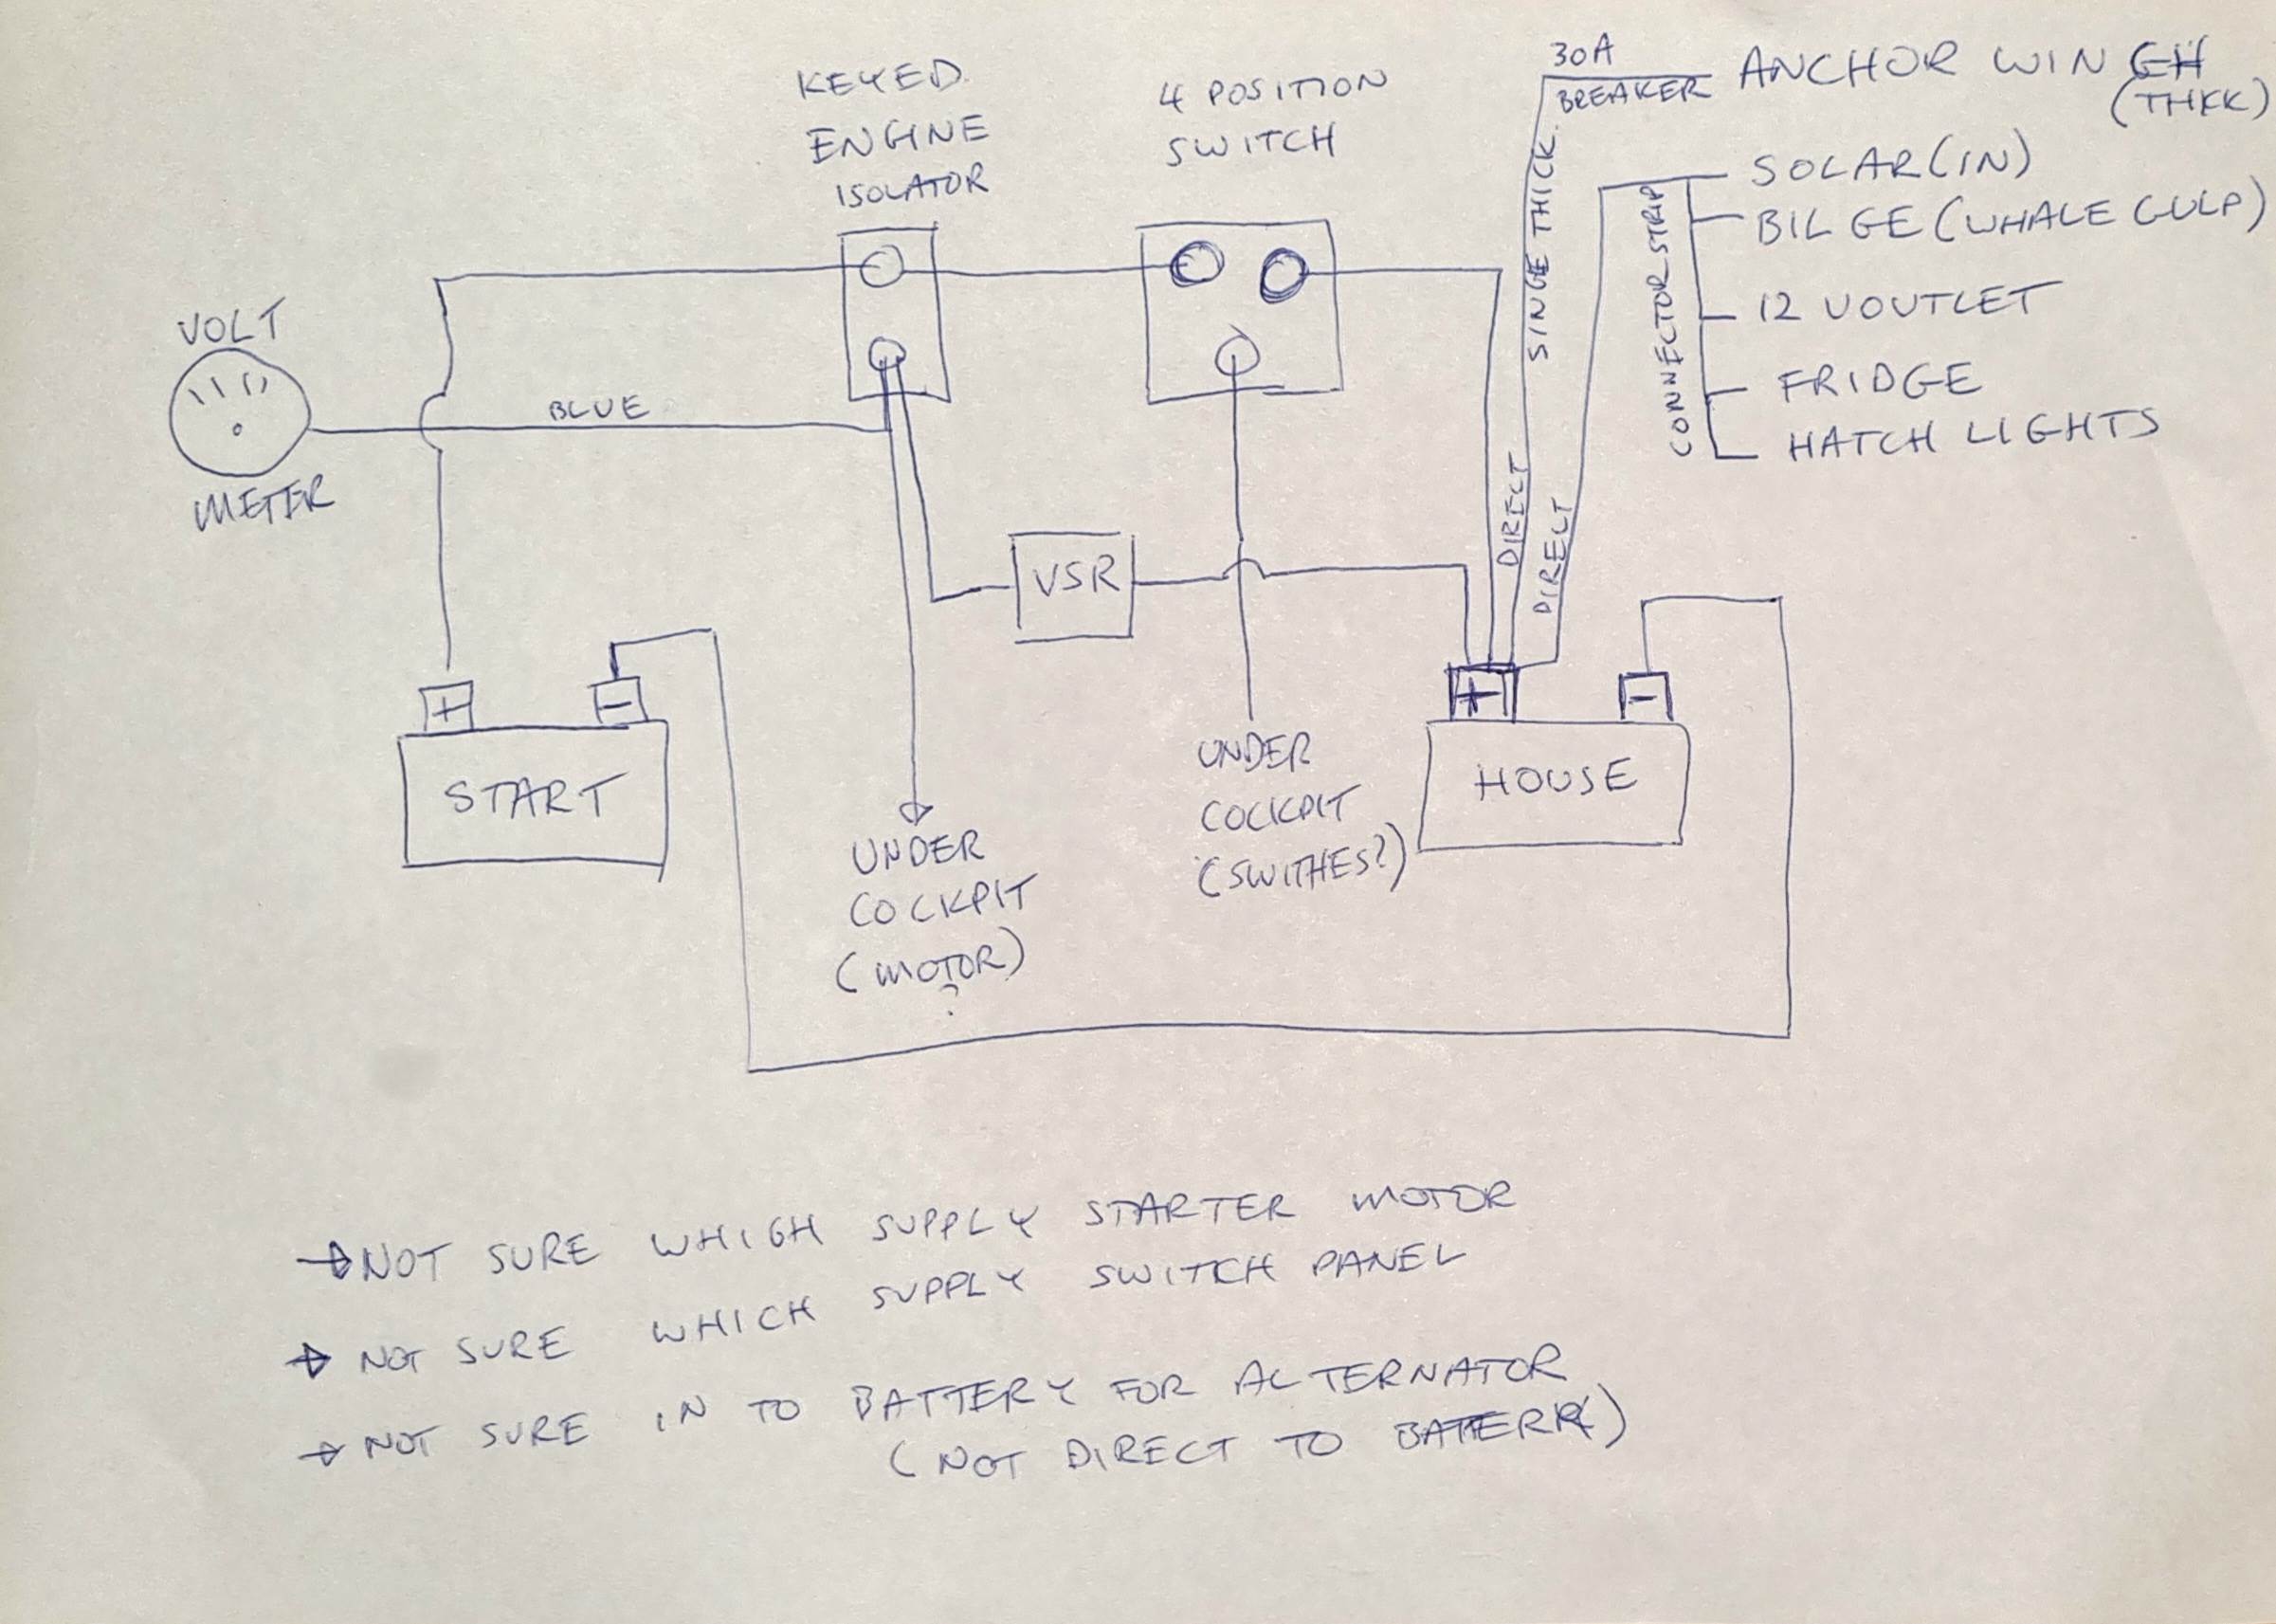 KEYED
ENGINE
ISOLATOR
4 POSITION
SWITCH
30A
BREAKER
ANCHOR WINGH
(THKK)
SINGE THICK.
DIRECT
DIRECT
CONNECTOR STRIP
SOLAR (IN)
BILGE (WHALE GULP)
12 VOUTLET
FRIDGE
HATCH LIGHTS
VOLT
METER
BLUE
VSR
+
-
START
+
-
HOUSE
UNDER
COCKPIT
(MOTOR)
?
UNDER
COCKPIT
(SWITHES?)
→ NOT SURE WHICH SUPPLY STARTER MOTOR
→ NOT SURE WHICH SUPPLY SWITCH PANEL
→ NOT SURE IN TO BATTERY FOR ALTERNATOR
(NOT DIRECT TO BATTERY)